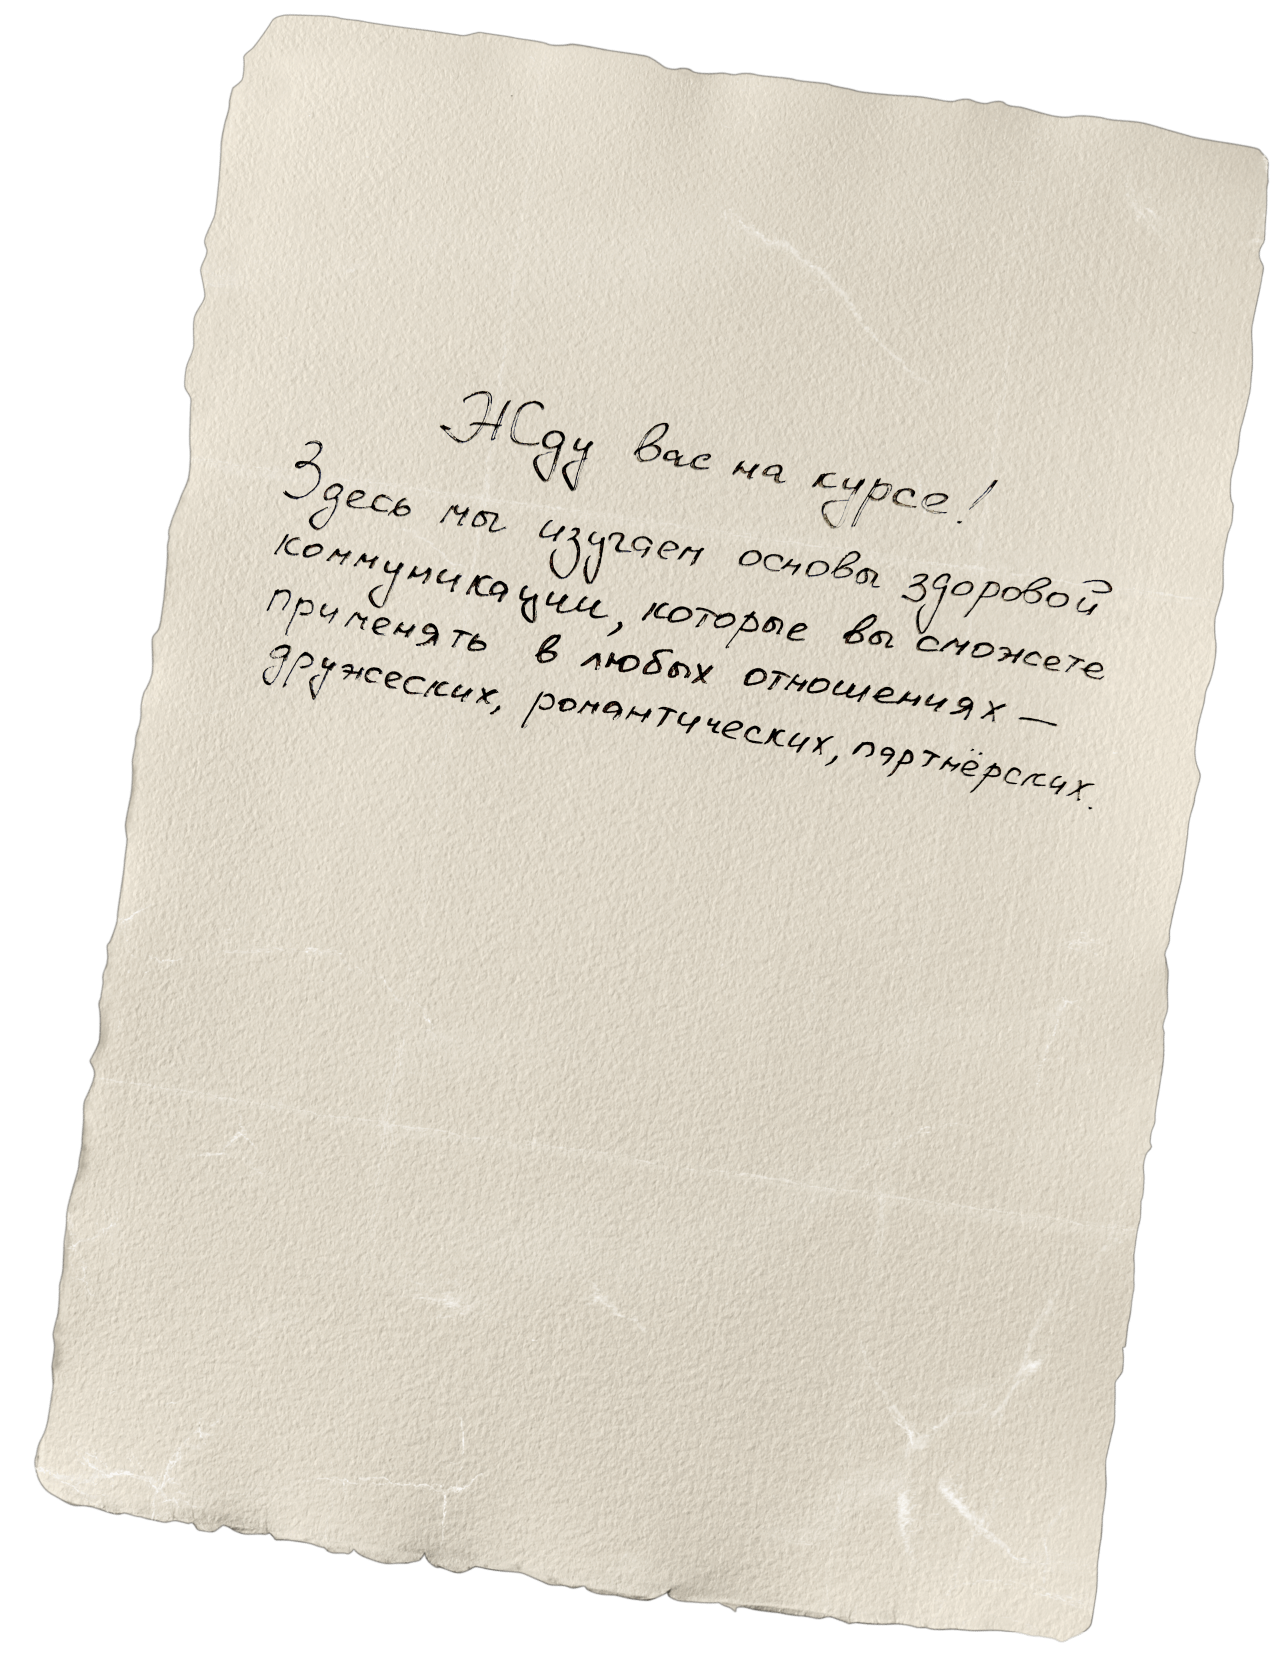 Жду вас на курсе!
Здесь мы изучаем основы здоровой
коммуникации, которые вы сможете
применять в любых отношениях —
дружеских, романтических, партнёрских.